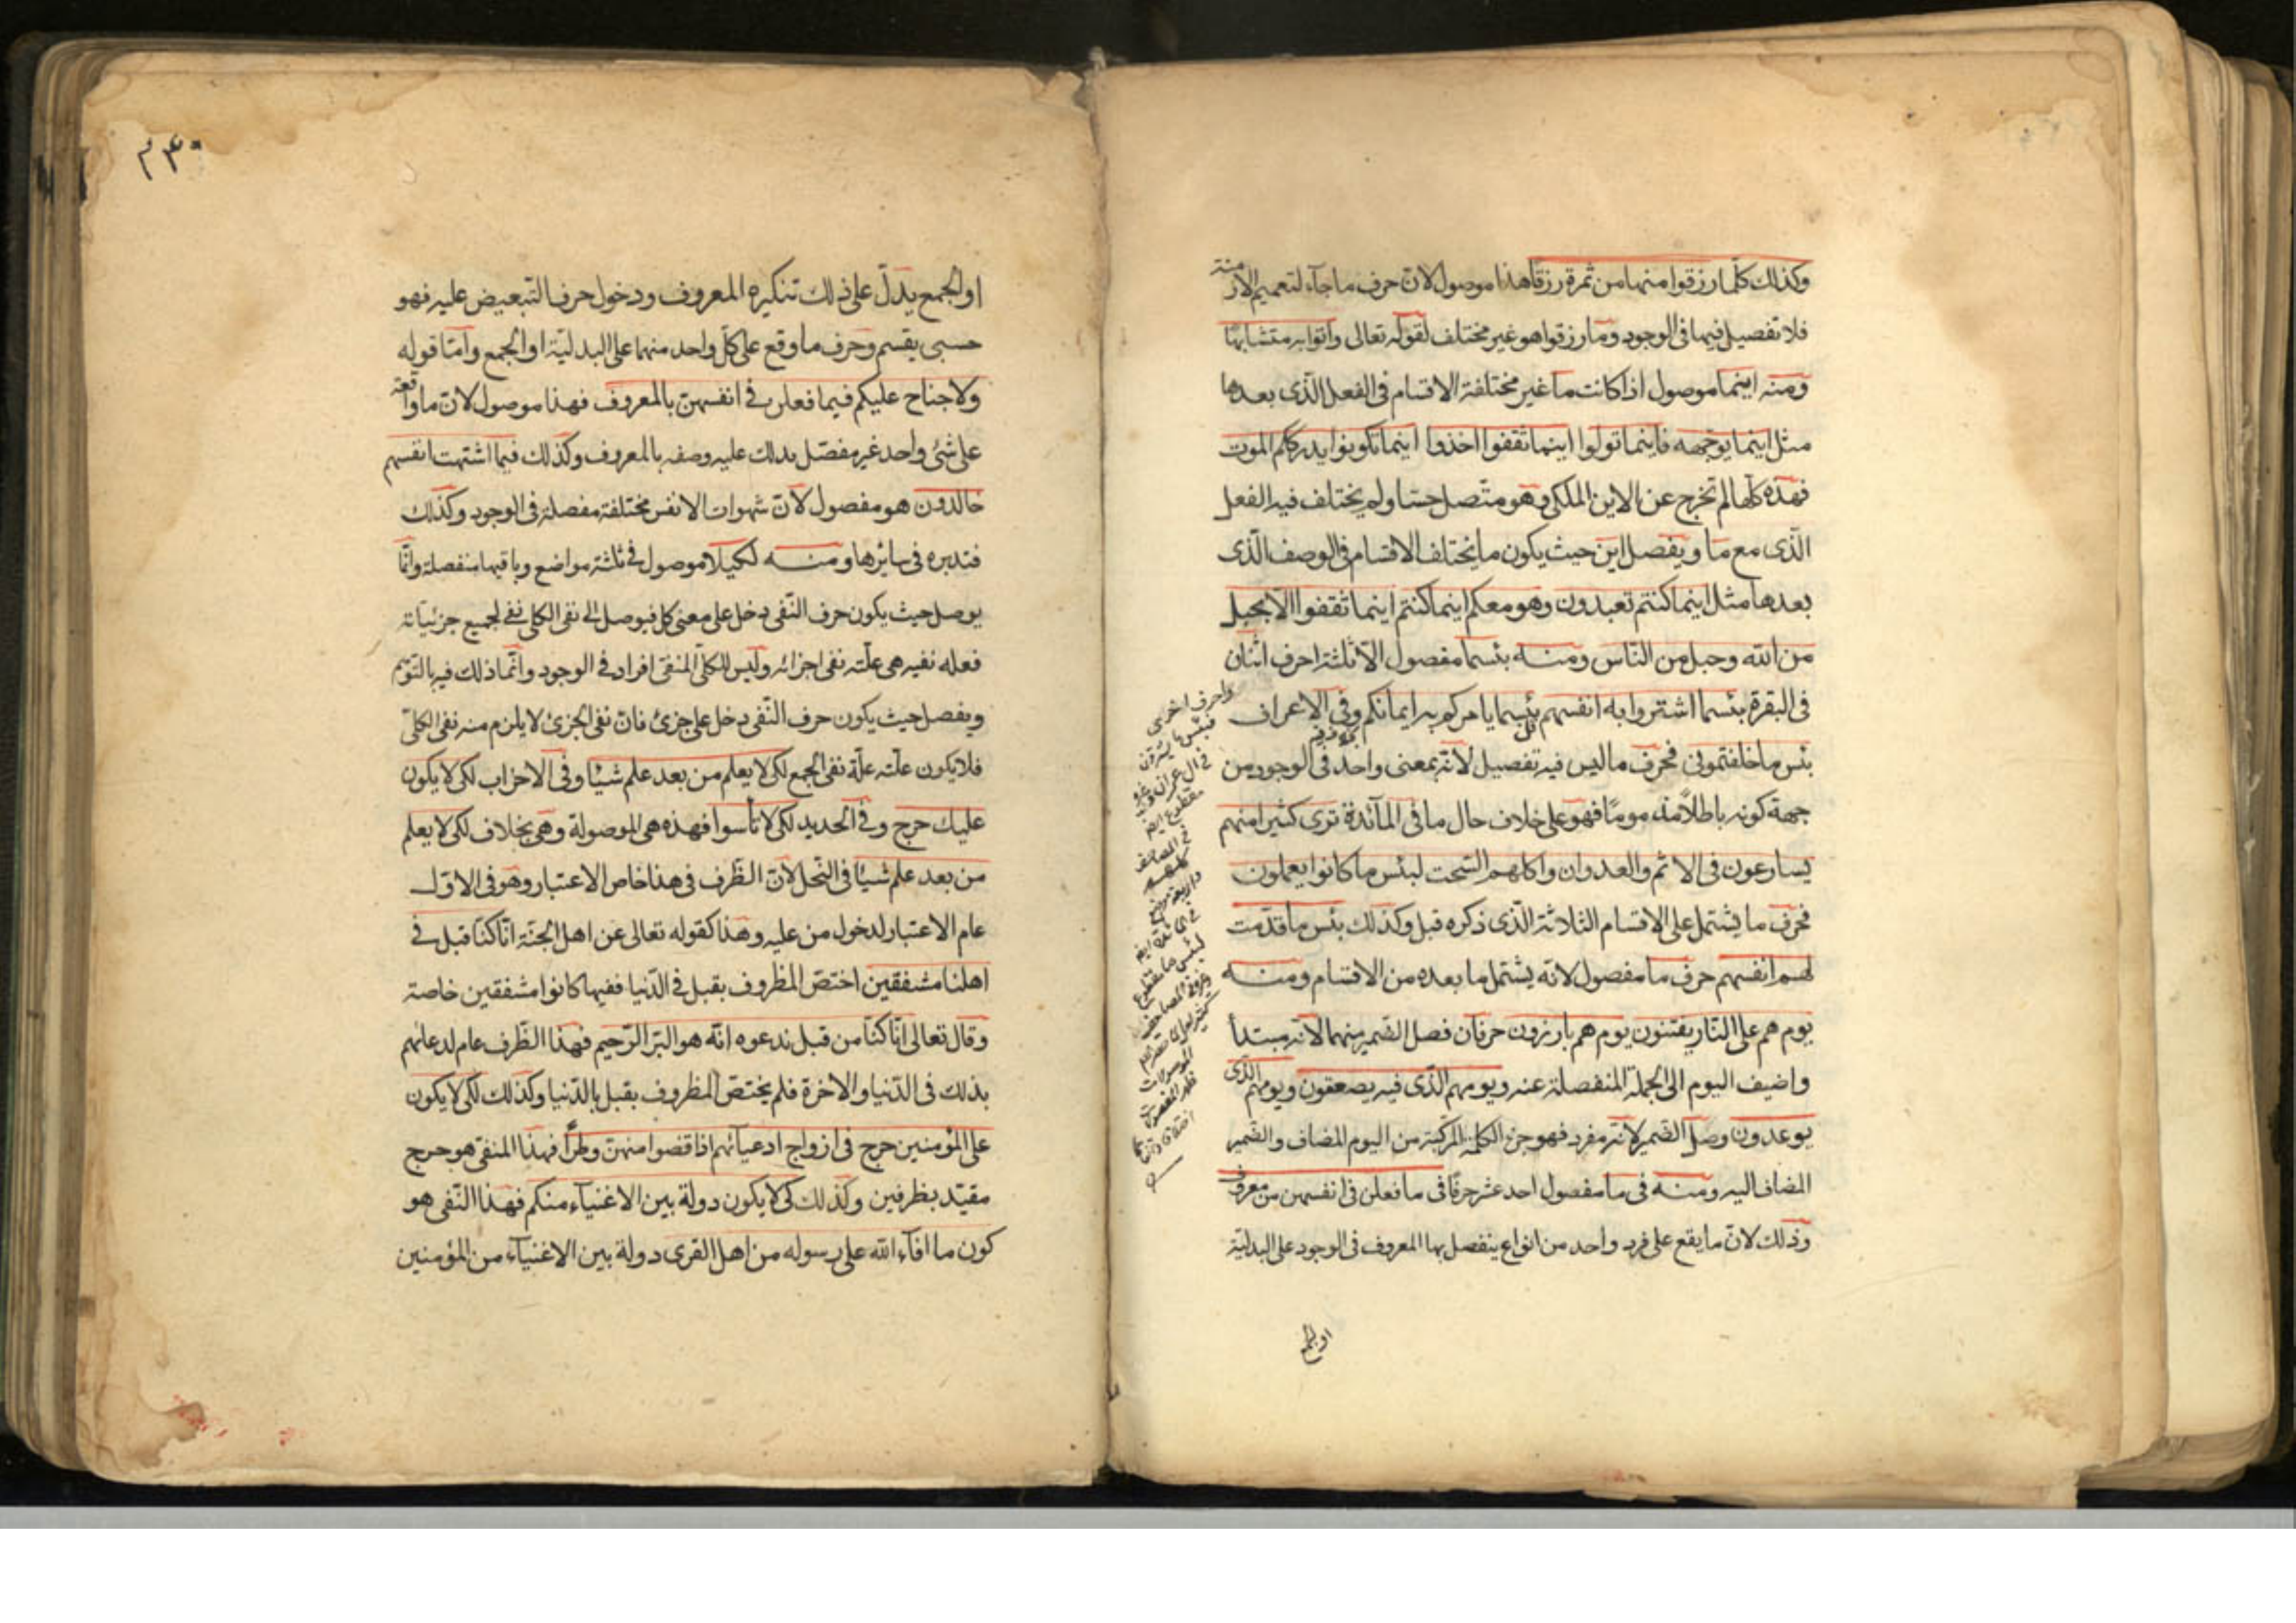 وكذلك كلما رزقوا منها من ثمرة رزقا هذا موصول لان حرف ما جآء لتعميم الازمنة
فلا تفصيل فيها فى الوجود وما رزقوا هو غير مختلف لقوله تعالى واتوا به متشابها
ومنه اينما موصول اذا كانت ما غير مختلفة الاقسام فى الفعل الذى بعدها
مثل اينما يوجهه فاينما تولوا اينما ثقفوا اخذوا اينما تكونوا يدرككم الموت
فهذه كلها لم تخرج عن الاين الملكى وهو متصل حسا ولم يختلف فيه الفعل
الذى مع ما ويفصل اين حيث يكون ما يختلف الاقسام فى الوصف الذى
بعدها مثل اينما كنتم تعبدون وهو معكم اينما كنتم اينما ثقفوا الا بحبل
من الله وحبل من الناس ومنه بئسما مفصول الا ثلثة احرف اثنان
فى البقرة بئسما اشتروا به انفسهم بئسما يامركم به ايمانكم وفى الاعراف
بئس ما خلفتمونى فحرف ما ليس فيه تفصيل لانه بمعنى واحد فى الوجود من
جهة كونه باطلا مذموما فهو على خلاف حال ما فى المآئدة ترى كثيرا منهم
يسارعون فى الاثم والعدوان واكلهم السحت لبئس ما كانوا يعملون
فحرف ما يشتمل على الاقسام الثلاثة الذى ذكره قبل وكذلك بئس ما قدمت
لهم انفسهم حرف ما مفصول لانه يشتمل ما بعده من الاقسام ومنه
يوم هم على النار يفتنون يوم هم بارزون حرفان فصل الضمير منهما لانه مبتدأ
واضيف اليوم الى الجملة المنفصلة عنه ويومهم الذى فيه يصعقون ويومهم الذى
يوعدون وصل الضمير لانه مفرد فهو جزء الكلمة المركبة من اليوم المضاف والضمير
المضاف اليه ومنه فى ما مفصول احد عشر حرفا فى ما فعلن فى انفسهن من معروف
وذلك لان ما يقع على فرد واحد من انواع ينفصل بها المعروف فى الوجود على البدلية
واحرف اخرى
فبئس ما يشترون
فى ال عمران
او الجمع
٢٣٠
او الجمع يدل على ذلك تنكيره المعروف ودخول حرف التبعيض عليه فهو
حسبى يقسم وحرف ما وقع على كل واحد منهما على البدلية او الجمع واما قوله
ولا جناح عليكم فيما فعلن فى انفسهن بالمعروف فهذا موصول لان ما واقعة
على شئ واحد غير مفصل بدلك عليه وصفه بالمعروف وكذلك فيما اشتهت انفسهم
خالدون هو مفصول لان شهوات الانفس مختلفة مفصلة فى الوجود وكذلك
فتدبره فى سائرها ومنه لكيلا موصول فى ثلثة مواضع وباقيها منفصلة وانما
يوصل حيث يكون حرف النفى دخل على معنى كل فيوصل لان نفى الكلى نفى لجميع جزئياته
فعله نفيه هى علته نفى اجزائه وليس للكلى المنفى افراد فى الوجود وانما ذلك فيه بالتوهم
ويفصل حيث يكون حرف النفى دخل على جزئ فان نفى الجزئ لا يلزم منه نفى الكلى
فلا يكون علته علة نفى الجمع لكى لا يعلم من بعد علم شيئا وفى الاحزاب لكى لا يكون
عليك حرج وفى الحديد لكى لا تأسوا فهذه هى الموصولة وهى بخلاف لكى لا يعلم
من بعد علم شيئا فى النحل لان الظرف فى هذا خاص الاعتبار وهو فى الاول
عام الاعتبار لدخول من عليه وهذا كقوله تعالى عن اهل الجنة انا كنا قبل فى
اهلنا مشفقين اختص المظروف بقبل فى الدنيا ففيها كانوا مشفقين خاصة
وقال تعالى انا كنا من قبل ندعوه انه هو البر الرحيم فهذا الظرف عام لدعائهم
بذلك فى الدنيا والاخرة فلم يختص المظروف بقبل بالدنيا وكذلك لكى لا يكون
على المؤمنين حرج فى ازواج ادعيآئهم اذا قضوا منهن وطرا فهذا المنفى هو حرج
مقيد بظرفين وكذلك كى لا يكون دولة بين الاغنيآء منكم فهذا النفى هو
كون ما افآء الله على رسوله من اهل القرى دولة بين الاغنيآء من المؤمنين